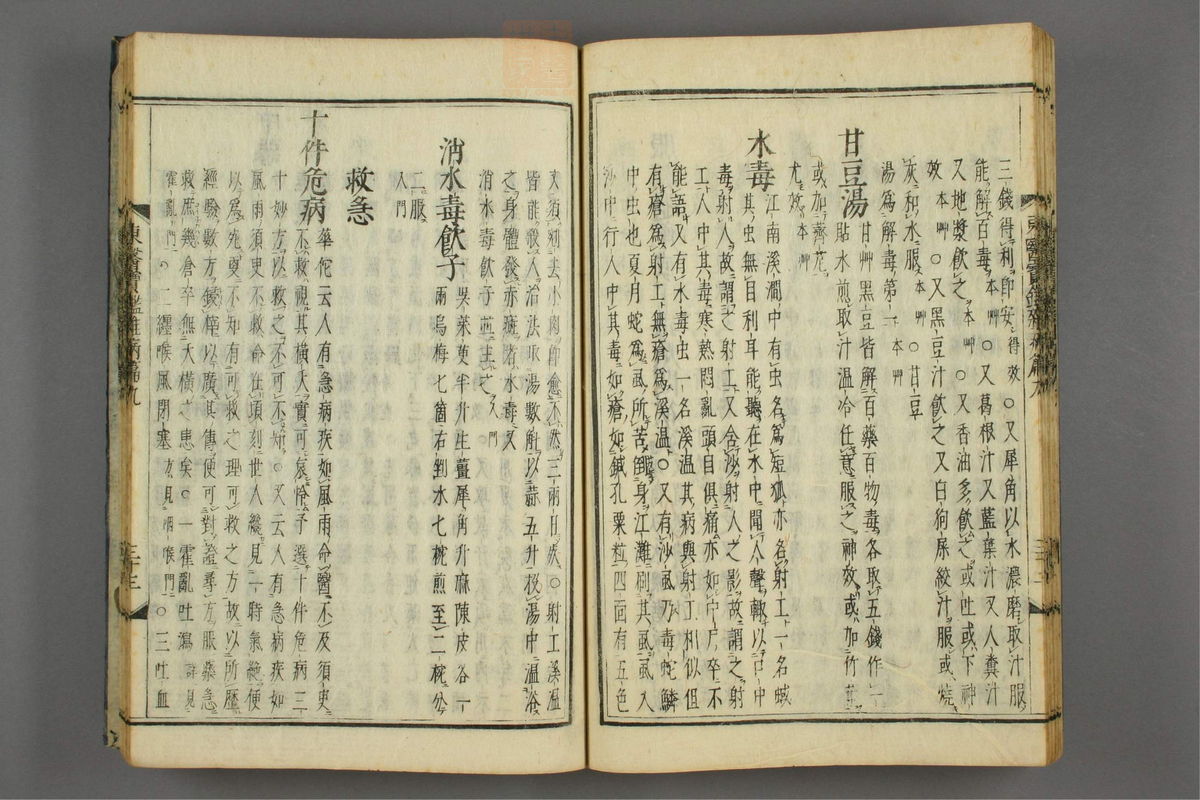 三錢得利卽安得效○又犀角以水濃磨取汁服
能解百毒本艸○又葛根汁又藍葉汁又人糞汁
又地漿飮之本艸○又香油多飮之或吐或下神
效本艸○又黑豆汁飮之又白狗屎絞汁服或燒
灰和水服本艸○甘豆
湯爲解毒第一本艸
甘豆湯
甘艸黑豆皆解百藥百物毒各取五錢作一
貼水煎取汁溫冷任意服之神效或加竹葉
或加薺苨
尤效本艸
水毒
江南溪澗中有虫名爲短狐亦名射工一名蜮
其虫無目利耳能聽在水中聞人聲輙以口中
毒射人故謂之射工又含沙射人之影故謂之射
工人中其毒寒熱悶亂頭目俱痛亦如中尸卒不
能語又有水毒虫一名溪溫其病與射工相似但
有瘡爲射工無瘡爲溪溫○又有沙虱乃毒蛇鱗
中虫也夏月蛇爲虱所苦倒身江灘刷其虱虱入
沙中行人中其毒如瘡如鍼孔粟粒四面有五色
文須剜去小肉卽愈不然三兩日死○射工溪溫
皆能殺人治法取湯數斛以蒜五升投湯中溫浴
之身體發赤斑者水毒又
消水毒飮子煎主之入門
消水毒飮子
吳茱萸半升生薑犀角升麻陳皮各一
兩烏梅七箇右剉水七椀煎至二椀分
二服
入門
救急
十件危病
華佗云人有急病疾如風雨命醫不及須臾
不救視其橫夭實可哀怜予選十件危病三
十妙方以救之不可不知○又云人有急病疾如
風雨須臾不救命在頃刻世人纔見一時氣絶便
以爲死更不知有可救之理可救之方故以所歷
經驗數方鏤梓以廣其傳便可對證尋方服藥急
救庶幾倉卒無夭橫之患矣○一霍亂吐瀉方見
霍亂門○二纏喉風閉塞方見咽喉門○三吐血
東醫寶鑑雜病篇九